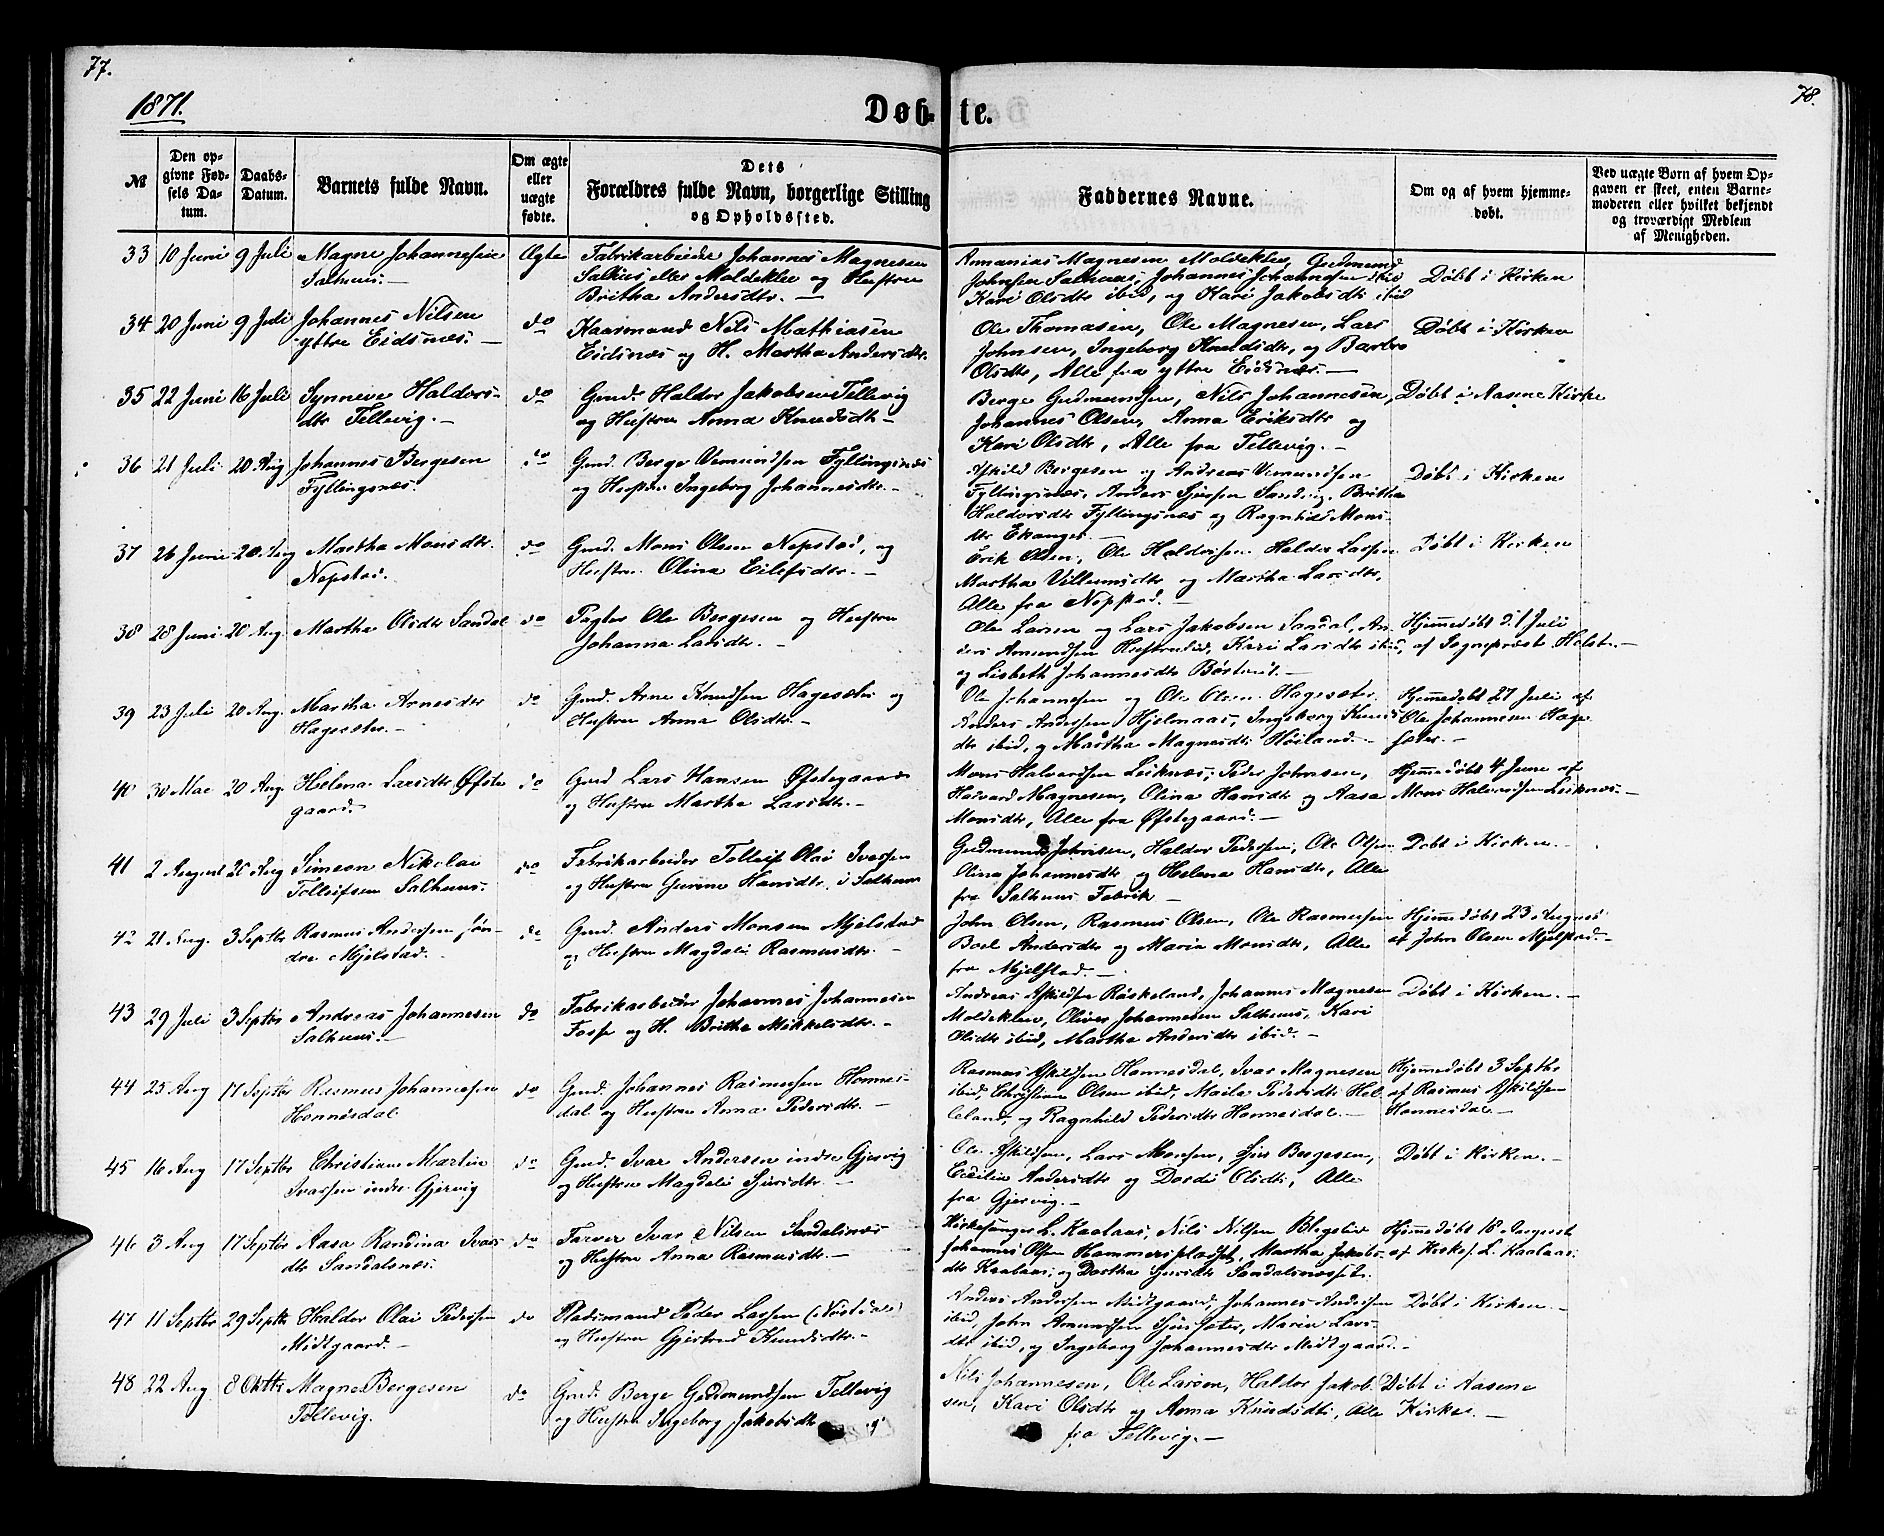 77.
78.
1871.
Døbte.
№
Den opgivne Fødsels Datum.
Daabs-Datum.
Barnets fulde Navn.
Om ægte eller uægte fødte.
Dets Forældres fulde Navn, borgerlige Stilling og Opholdssted.
Faddernes Navne.
Om og af hvem hjemmedøbt.
Ved uægte Børn af hvem Opgaven er skeet, enten Barnemoderen eller hvilket bekjendt og troværdigt Medlem af Menigheden.
33 10 Juni 9 Juli Magne Johannesen Salhuus. Ægte Fabrikarbeider Johannes Magnesen
Salhus eller Moldeklev og Hustru
Britha Andersdtr.
Magnesen Moldeklev, Gudmund
Johnsen Salhuus, Johannes Johannesen ibid
Kari Olsdtr ibid, og Kari Jakobsdtr ibid
Døbt i Kirken
34 20 Juni 9 Juli Johannes Nilsen yttre Eidsnes. do Kaarmand Nils Mathiasen
Eidsnæs og H. Martha Andersdtr.
Ole Thomasen, Ole Magnesen, Lars
Johnsen, Ingeborg Knudsdtr, og Barbro
Olsdtr, Alle fra yttre Eidsnæs.
Døbt i Kirken
35 22 Juni 16 Juli Synneve Haldorsdtr Tellevig. do Gmd. Haldor Jakobsen Tellevig
og Hustru Anna Knudsdtr
Berge Gudmundsen, Nils Johannesen,
Johannes Olsen, Anna Eriksdtr og
Kari Olsdtr, Alle fra Tellevig.
Døbt i Aasene Kirke
36 21 Juli 20 Aug Johannes Bergesen Fyllingsnæs. do Gmd. Berge Vemundsen Fyllingsnæs
og Hustru Ingeborg Johannesdtr.
Askild Bergesen og Andreas Vemundsen
Fyllingsnæs, Anders Sjursen Sandvig, Britha
Haldorsdtr Fyllingsnæs og Ragnhild Monsdtr Ekanger.
Døbt i Kirken
37 26 Juni 20. Aug Martha Monsdtr. Nepstad. do Gmd. Mons Olsen Nepstad, og
Hustru Olina Eilefsdtr.
Erik Olsen, Ole Haldorsen, Haldor Larsen
Martha Villumsdtr og Martha Larsdtr,
Alle fra Nepstad.
Døbt i Kirken
38 28 Juni 20 Aug. Martha Olsdtr Sandal do Pagter Ole Bergesen og Hustru
Johanna Larsdtr.
Ole Larsen og Lars Jakobsen Sandal, Anders Amundsen
Kari Larsdtr ibid,
og Lisbeth Johannesdtr
Hjemmedøbt d. 1 Juli
af Sognepræst Holst.
39 23 Juli 20 Aug. Martha Arnesdtr Hagesæter. do Gmd. Arne Knudsen Hagesæter og
Hustru Anna Olsdtr.
Ole Johannesen og Ole Olsen Hagesæter
Anders Andersen Hjelmaas, Ingeborg Knudsdtr ibid, og Martha Magnesdtr Høiland.
Hjemmedøbt 27 Juli af
Ole Johannesen Hagesæter.
40 30 Mai 20 Aug Helena Larsdtr Øfstegaard. do Gmd Lars Hansen Øfstegaard
og Hustru Martha Larsdtr.
Mons Halvardsen Leiknæs, Peder Johnsen,
Havard Magnesen, Olina Hansdtr og Aasa
Monsdtr, Alle fra Øfstegaard.
Hjemmedøbt 4 Juni af
Mons Halvardsen Leiknæs.
41 2 August 20 Aug Simeon Nikolai Tolleifsen Salhuus. do Fabrikarbeider Tolleif Olai Ivarsen
og Hustru Hansdtr. i Salhuus
Gudmund Johnsen, Haldor Pedersen, Ole Olsen
Olina Johannesdtr og Helena Hansdtr, Alle
fra Salhuus Fabrik
Døbt i Kirken.
42 21 Aug. 3 Septbr Rasmus Andersen søndre Mjelstad. do Gmd. Anders Monsen Mjelstad
og Hustru Magdeli Rasmusdtr.
John Olsen, Rasmus Olsen, Ole Rasmussen
Boel Andersdtr og Maria Monsdtr, Alle
fra Mjelstad.
Hjemmedøbt 23 August
af John Olsen Mjelstad.
43 29 Juli 3 Septbr Andreas Johannesen Salhuus. do Fabrikarbeider Johannes Johannesen
Fosse og H. Britha Mikkelsdtr.
Andreas Askildsen Røskeland, Johannes Magnesen
Moldeklev, Oliver Johannesen Salhuus, Kari
Olsdtr ibid, Martha Andersdtr ibid.
Døbt i Kirken.
44 25 Aug 17 Septbr Rasmus Johannesen Hannisdal do Gmd. Johannes Rasmussen Hannisdal og Hustru Anna Pedersdtr.
Rasmus Askildsen Hannesdal, Ivar Magnesen
ibid, Christian Olsen ibid, Pedersdtr Helleland, og Ragnhild Pedersdtr Hannesdal.
Hjemmedøbt 3 Septbr
af Rasmus Askildsen
Hannesdal.
45 16 Aug 17 Septbr Christian Martin Ivarsen indre Gjervig do Gmd. Ivar Andersen indre Gjervig
og Hustru Magdeli Sjursdtr.
Ole Askildsen, Lars Monsen, Sjur Bergesen,
Cecilia Andersdtr og Dordei Olsdtr, Alle
fra Gjervig.
Døbt i Kirken.
46 3 Aug 17 Septbr Aasa Randina Ivarsdtr Sandalsnæs. do Farver Ivar Nilsen Sandalsnæs
og Hustru Anna Rasmusdtr.
Kirkesanger L. Kaalaas, Nils Nilsen
Johannes Olsen Hammersplads, Martha Jakobsdtr Kaalaas, og Dortha Sjursdtr
Hjemmedøbt 18 August
af Kirkes. L. Kaalaas.
47 11 Septbr 29 Septbr Haldor Olai Pedersen Midtgaard. do Pladsmand Peder Larsen
og Hustru Gjertrud Knudsdtr.
Anders Andersen Midtgaard, Johannes Andersen
ibid, John Amundsen Maria Larsdtr ibid, og Ingeborg Johannesdtr Midtgaard.
Døbt i Kirken.
48 22 Aug 8 Oktbr Magne Bergesen Tellevig. do Gmd. Berge Gudmundsen Tellevig
og Hustru Ingeborg Jakobsdtr
Nils Johannesen, Ole Larsen, Haldor Jakobsen, Kari Olsdtr og Anna Knudsdtr, Alle
fra Tellevig.
Døbt i Aasene
Kirke.